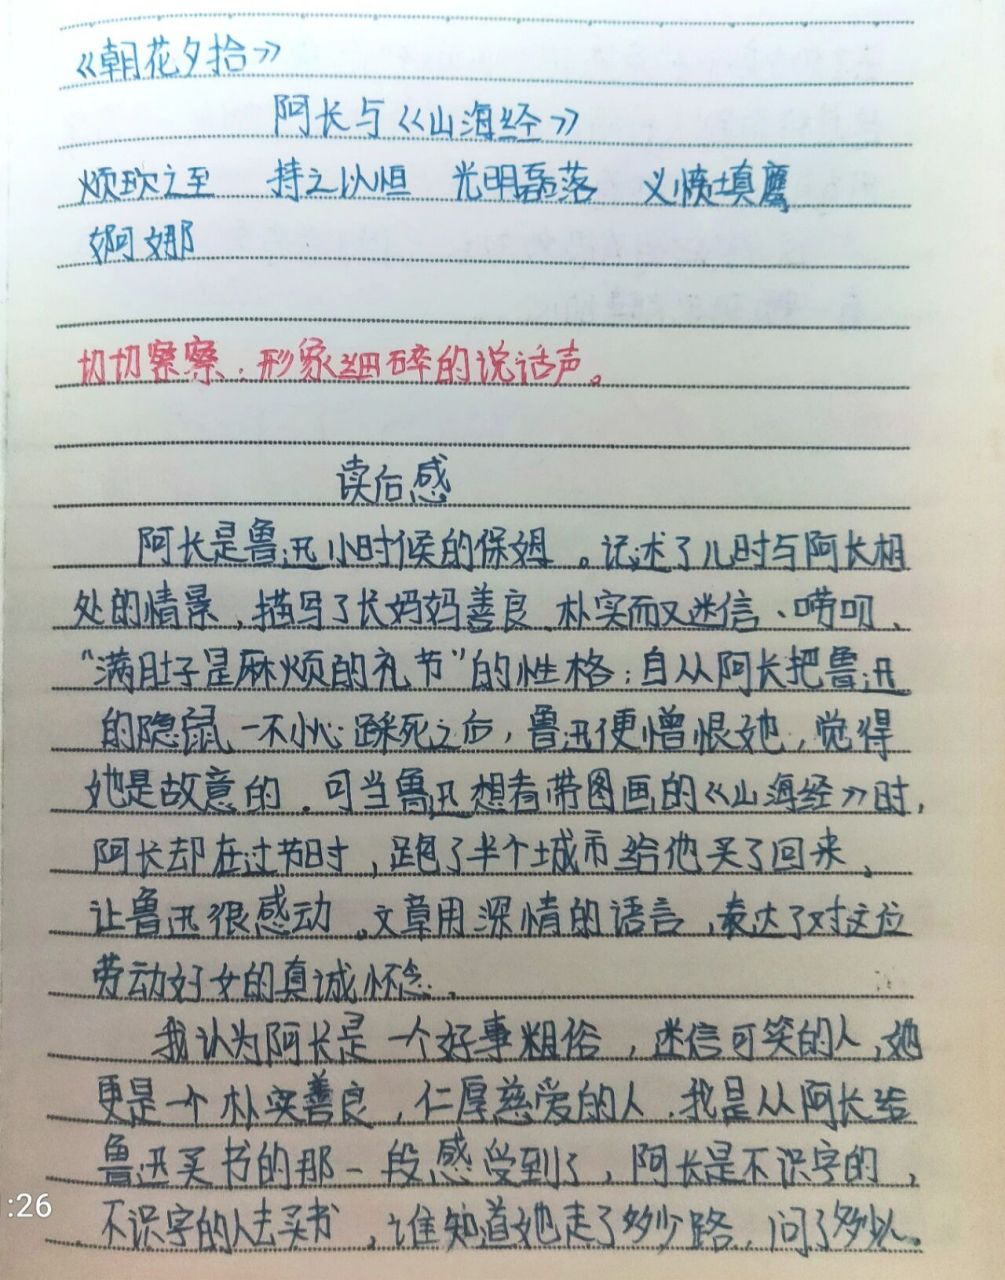 《朝花夕拾》
阿长与《山海经》
烦琐之至 持之以恒 光明磊落 义愤填鹰
婀娜
切切察察：形象细碎的说话声。
读后感
阿长是鲁迅小时候的保姆。记述了儿时与阿长相
处的情景，描写了长妈妈善良、朴实而又迷信、唠叨、
“满肚子是麻烦的礼节”的性格；自从阿长把鲁迅
的隐鼠一不小心踩死之后，鲁迅便憎恨她，觉得
她是故意的。可当鲁迅想着带图画的《山海经》时，
阿长却在过节时，跑了半个城市给他买了回来，
让鲁迅很感动。文章用深情的语言，表达了对这位
劳动好女的真诚怀念。
我认为阿长是一个好事粗俗，迷信可笑的人，她
更是一个朴实善良，仁厚慈爱的人。我是从阿长给
鲁迅买书的那一段感受到了，阿长是不识字的，
不识字的人去买书，谁知道她走了多少路，问了多少人。
:26